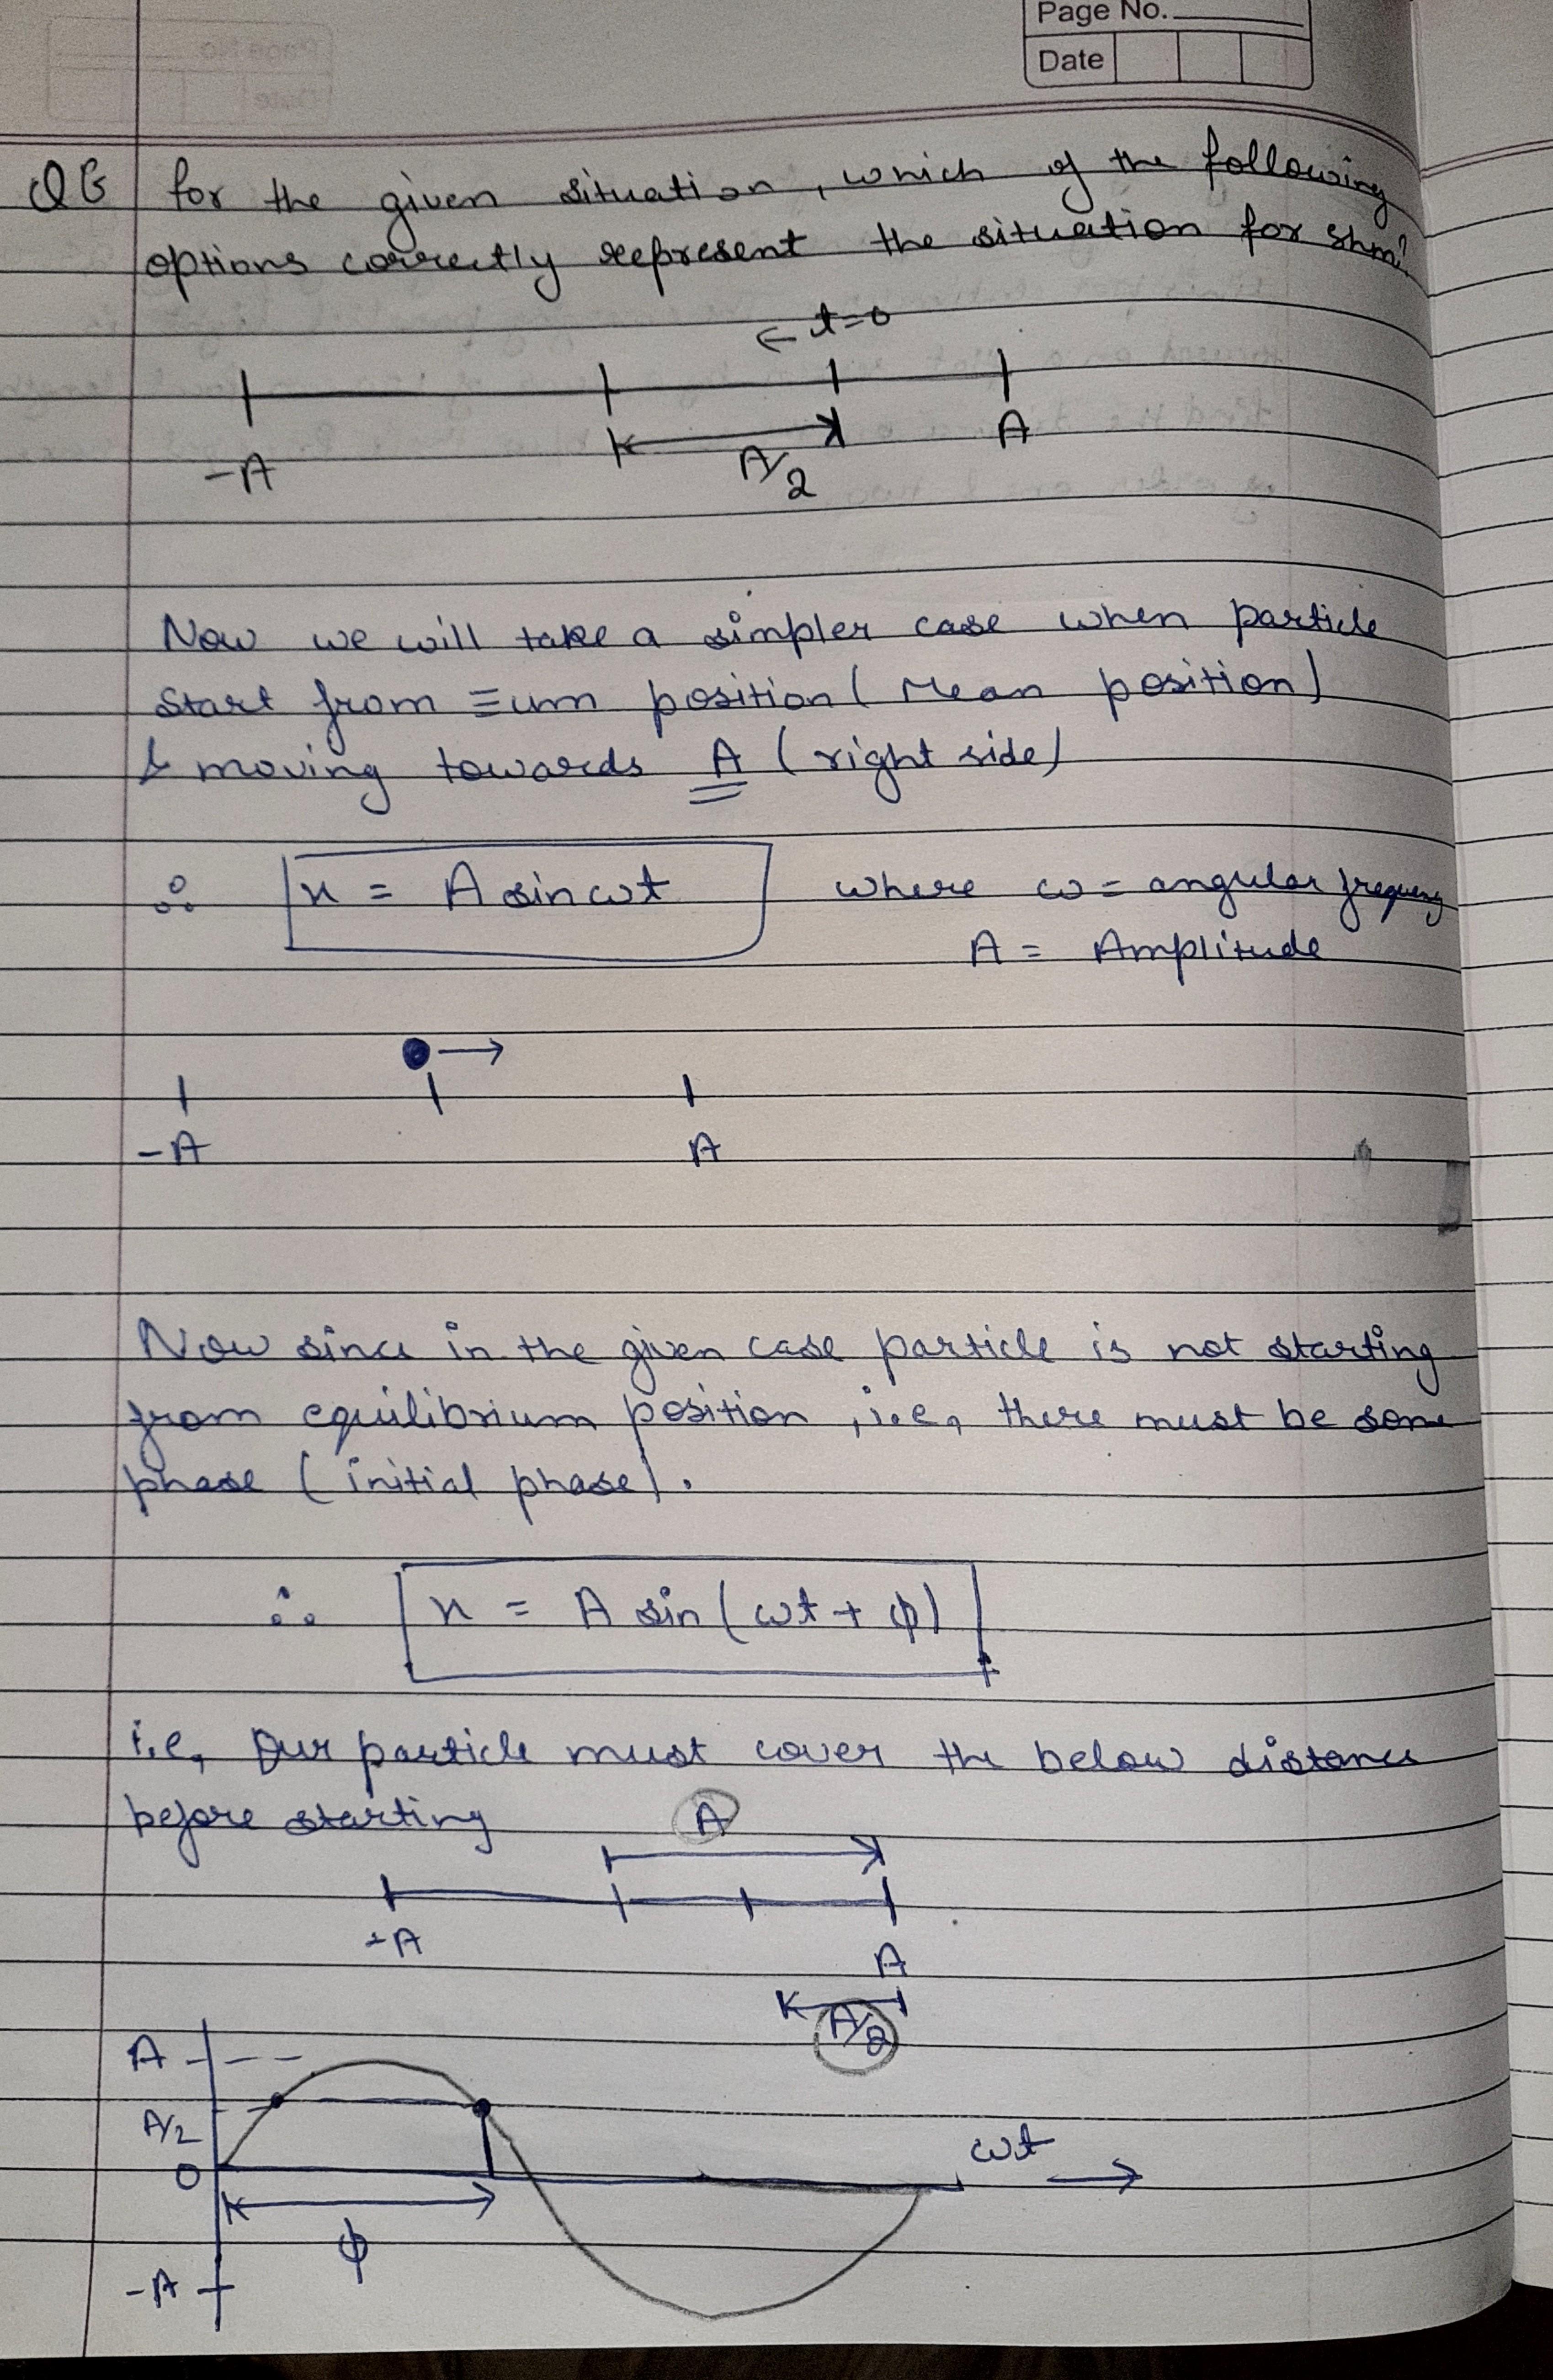 Page No.
Date
Q6 for the given situation, which of the following
options correctly represent the situation for shm?
← t=0
-A
A/2
A
Now we will take a simpler case when particle
start from ≡um position (Mean position)
& moving towards A (right side)
∴ x = A sin ωt where ω = angular frequency
A = Amplitude
-A
A
Now since in the given case particle is not starting
from equilibrium position, i.e, there must be some
phase (initial phase).
∴ x = A sin (ωt + φ)
i.e, Our particle must cover the below distance
before starting
A
-A
A
A/2
A
A/2
0
ωt
φ
-A